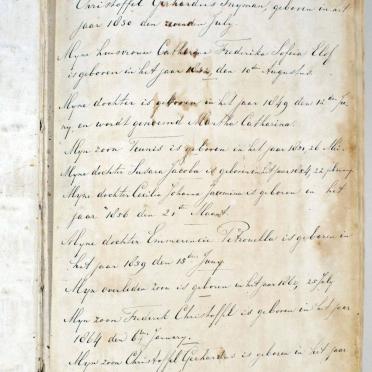 Christoffel Gerhardus Snyman, geboren in het
jaar 1830 den zevenden july
Myne huisvrouw Catharina Frederika Sofia Elof
is geboren in het jaar 1832, den 10de Augustus.
Myne dochter is geboren in het jaar 1849 den 12den
en wordt genoemd Martha Catharina.
Myn zoon Teunis is geboren in het jaar 1851, 26 Mei.
Myne dochter Susara Jacoba is geboren in het jaar 1854, 22 february
Myne dochter Cecilia Johanna is geboren in het
jaar 1856 den 21st Maart.
Myne dochter Emmerentia Petronella is geboren in
het jaar 1859 den 18den Juny
Myn overleden zoon is geboren in het jaar 1862, 25 July
Myn zoon Frederik Christoffel is geboren in het jaar
1864 den 6den January.
Myn zoon Christoffel Gerhardus is geboren in het jaar